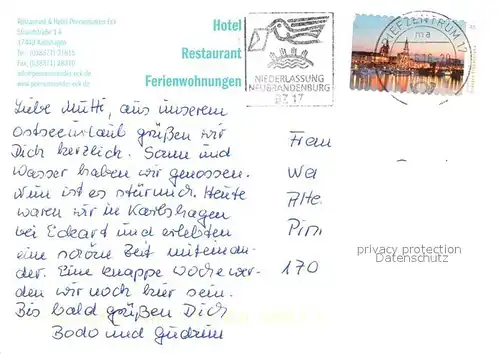 Restaurant & Hotel Peenemünder Eck
Strandstraße 1A
17449 Karlshagen
Tel. (038371)
Fax (038371)
Hotel
Restaurant
Ferienwohnungen
NIEDERLASSUNG
NEUBRANDENBURG
BZ 17
BRIEFZENTRUM 17
ma
Liebe Mutti, aus unserem
Ostseeurlaub grüßen wir
Dich herzlich. Sonne und
Wasser haben wir genossen.
Nun ist es stürmisch. Heute
waren wir in Karlshagen
bei Eckart und erlebten
eine schöne Zeit miteinan-
der. Eine knappe Woche wer-
den wir noch hier sein.
Bis bald grüßen Dich
Bodo und Gudrun
Frau
Wa
Alte
Pirn
170
privacy protection
Datenschutz